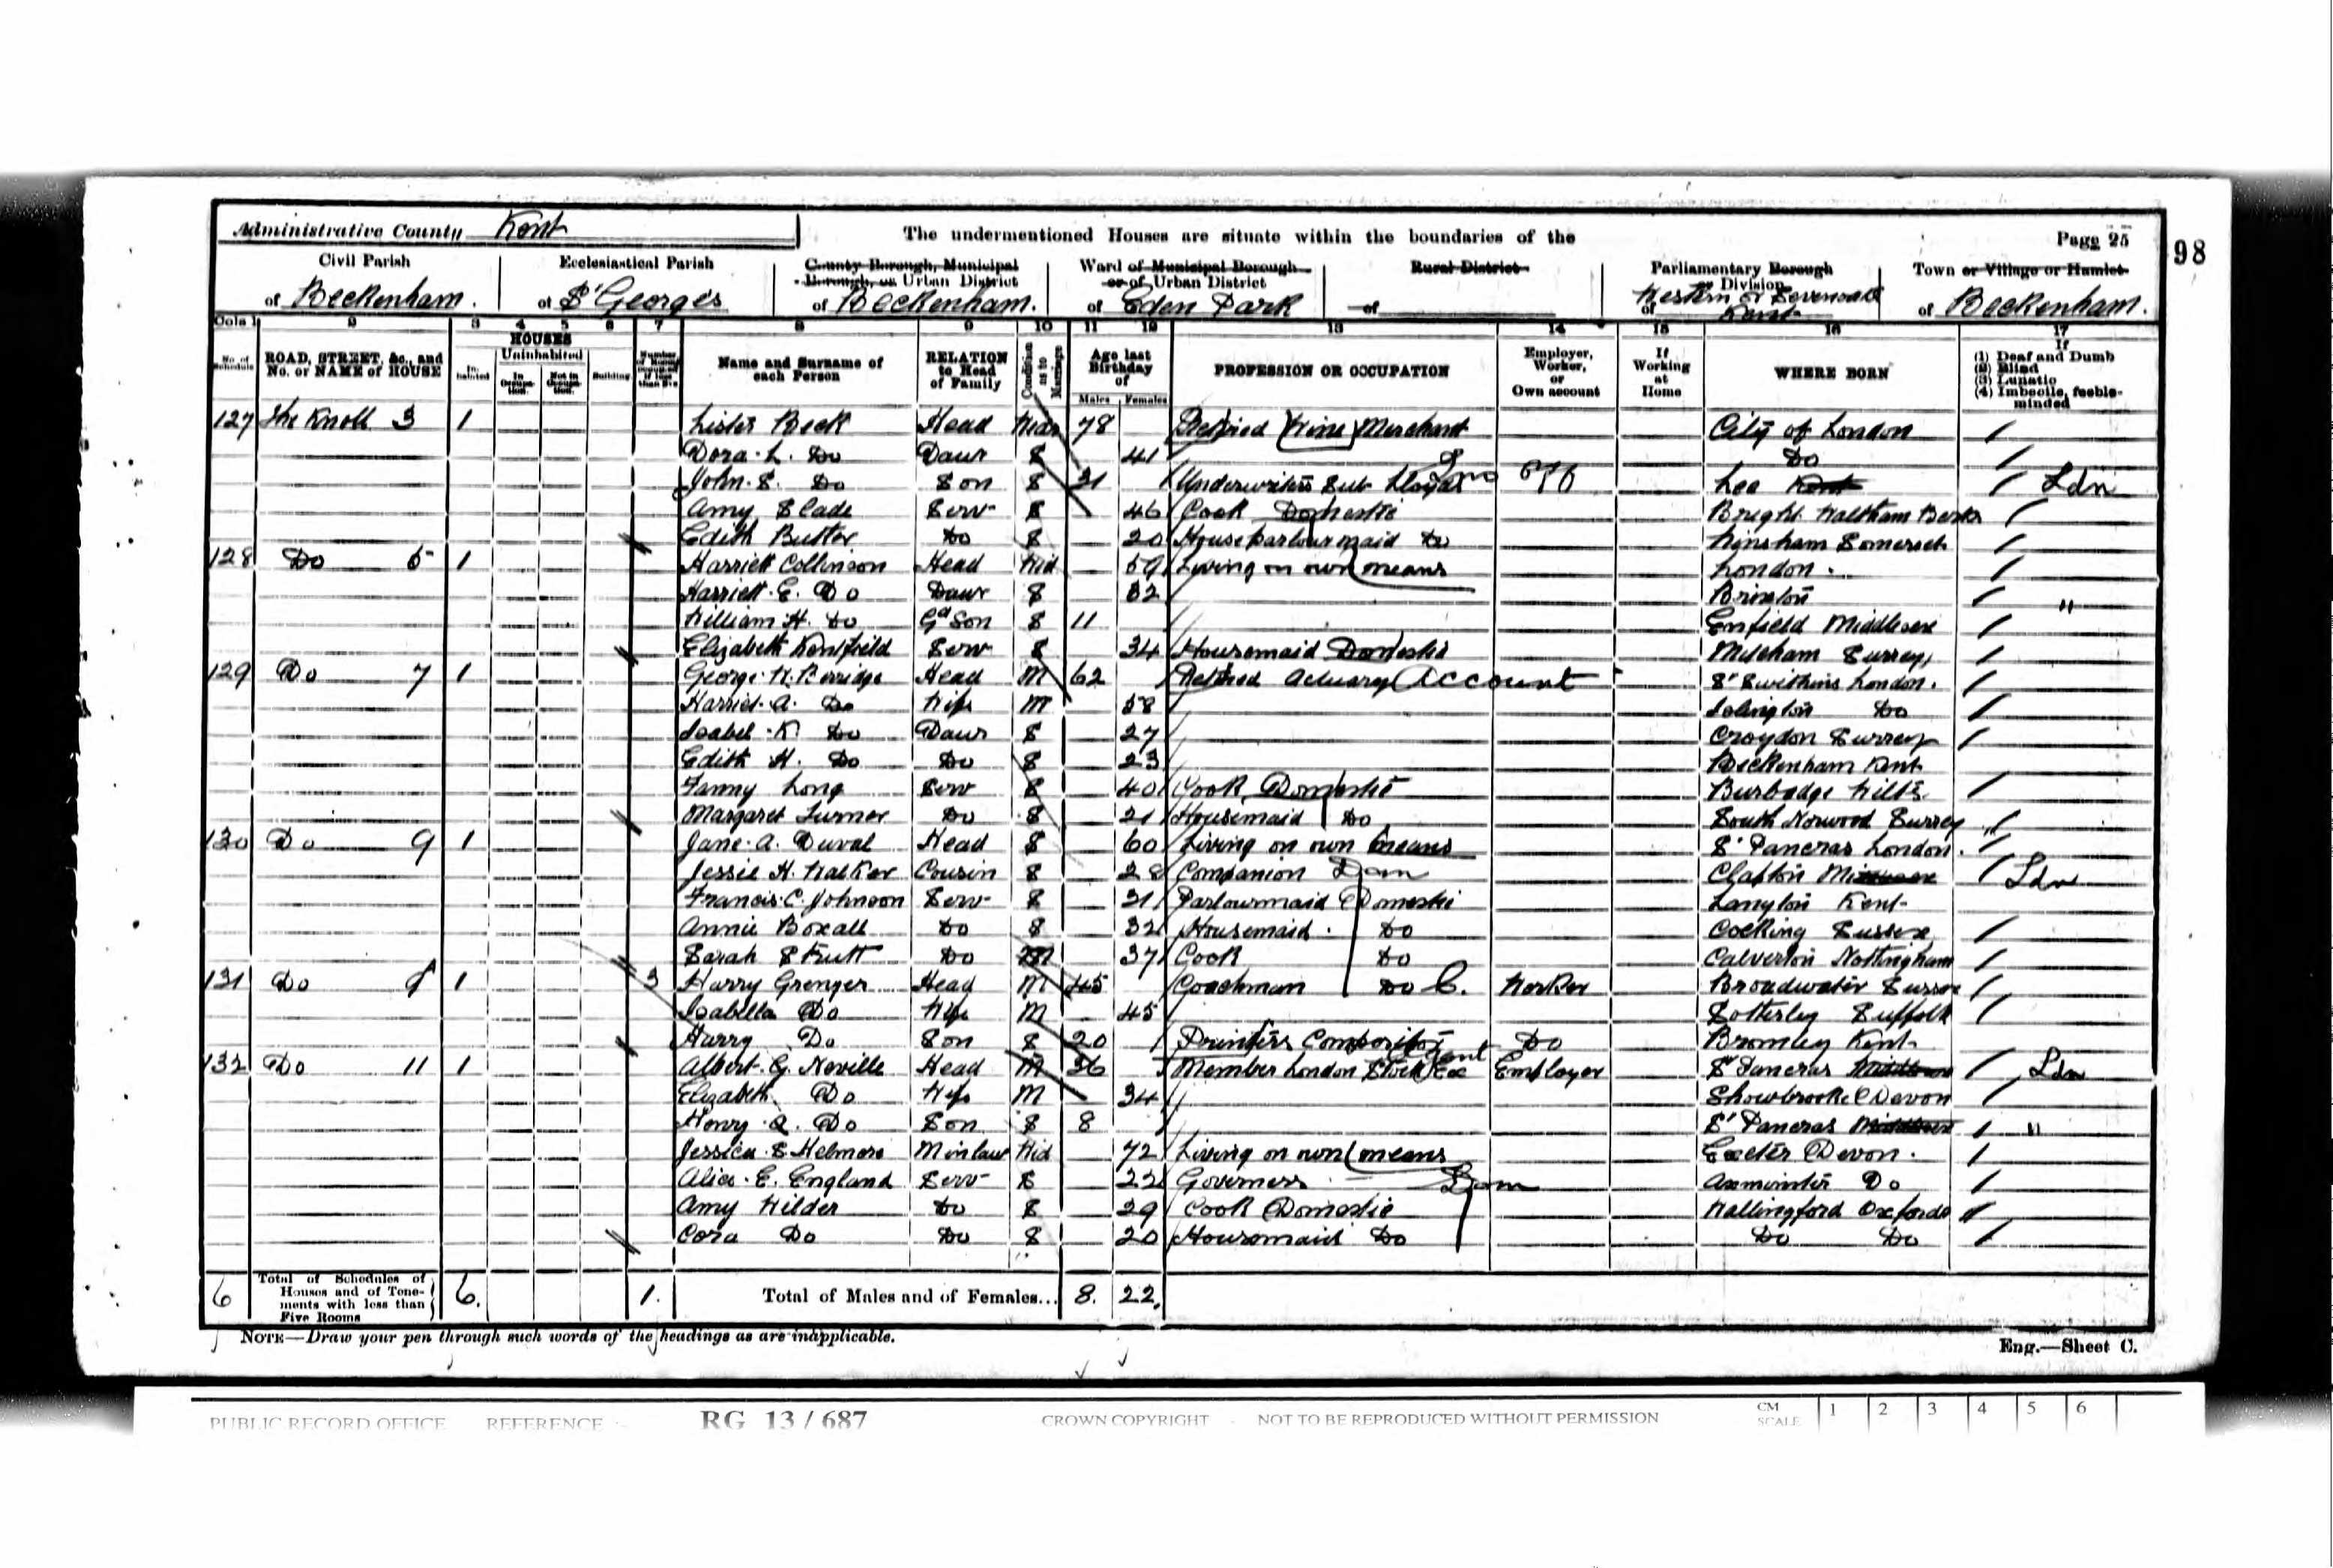 Administrative County Kent
The undermentioned Houses are situate within the boundaries of the
Page 25
98
Civil Parish of Beckenham.
Ecclesiastical Parish of St Georges
County Borough, Municipal Borough, or Urban District of Beckenham.
Ward of Municipal Borough or of Urban District of Eden Park
Rural District of
Parliamentary Borough or Division of Western or Sevenoaks Kent
Town or Village or Hamlet of Beckenham.
Cols 1 2 3 4 5 6 7 8 9 10 11 12 13 14 15 16 17
No. of Schedule
ROAD, STREET, &c., and No. or NAME of HOUSE
HOUSES
Inhabited
Uninhabited
In Occupation.
Not in Occupation.
Building
Number of Rooms occupied if less than five
Name and Surname of each Person
RELATION to Head of Family
Condition as to Marriage
Age last Birthday of
Males Females
PROFESSION OR OCCUPATION
Employer, Worker, or Own account
If Working at Home
WHERE BORN
If
(1) Deaf and Dumb
(2) Blind
(3) Lunatic
(4) Imbecile, feeble-minded
127 The Knoll 3 1 Lister Beck Head 78 Retired Wine Merchant City of London
Dora. L. Do Daur S 41 Do
John. S. Do Son S 31 Underwriters Sub Lloyds Lee Kent Ldn
Amy Slade Serv S 46 Cook Domestic Bright Waltham Berks
Edith Butter Do S 20 House parlourmaid Do Somerset
128 Do 5 1 Harriett Collinson Head Wid 59 Living on own means London.
Harriett. E. Do Daur S 32 Brixton "
William H. Do Gd Son S 11 Enfield Middlesex
Elizabeth Kentfield Serv S 34 Housemaid Domestic Mitcham Surrey
129 Do 7 1 George. W. Berridge Head M 62 Retired Actuary Account St Swithins London.
Harriet. A. Do Wife M 58 Islington Do
Isabel. K. Do Daur S 27 Croydon Surrey
Edith H. Do Do S 23 Beckenham Kent
Fanny Long Serv S 40 Cook Domestic Burbadge Wilts.
Margaret Turner Do S 21 Housemaid Do South Norwood Surrey
130 Do 9 1 Jane. A. Duval Head S 60 Living on own means St Pancras London.
Jessie H. Walker Cousin S 28 Companion Dom Clapton Ldn
Francis. C. Johnson Serv S 21 Parlourmaid Domestic Langton Kent
Annie Boxall Do S 32 Housemaid. Do Cocking Sussex
Sarah Strutt Do 37 Cook Do Calverton Nottingham
131 Do 9 1 3 Harry Grenger Head M 45 Coachman Do Worker Broadwater Sussex
Isabella Do Wife M 45 Sotterley Suffolk
Harry Do Son S 20 Printers Compositor Do Bromley Kent
132 Do 11 1 Albert. G. Neville Head M 36 Member London Stock Ex Employer St Pancras Ldn
Elizabeth Do Wife M 34 Showbrooke Devon
Henry. A. Do Son S 8 St Pancras "
Jessica S Helmore M in law Wid 72 Living on own means Exeter Devon.
Alice. E. England Serv S 22 Governess Dom Axminster Do
Amy Wilder Do S 29 Cook Domestic Wallingford Oxfords
Cora Do Do S 20 Housemaid Do Do Do
6 Total of Schedules of Houses and of Tenements with less than Five Rooms 6. 1. Total of Males and of Females... 8. 22.
NOTE—Draw your pen through such words of the headings as are inapplicable.
Eng.—Sheet C.
PUBLIC RECORD OFFICE REFERENCE RG 13/687 CROWN COPYRIGHT NOT TO BE REPRODUCED WITHOUT PERMISSION CM SCALE 1 2 3 4 5 6